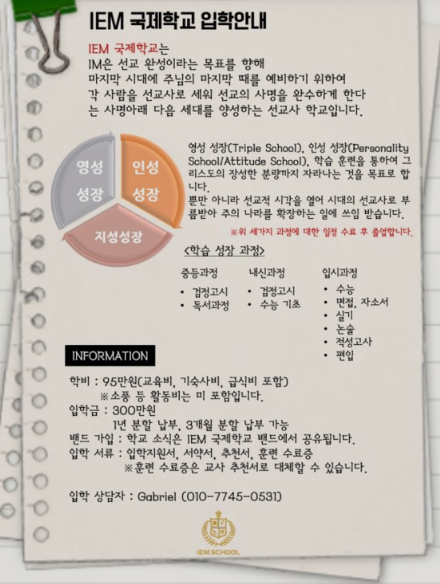 IEM 국제학교 입학안내
IEM 국제학교는
IM은 선교 완성이라는 목표를 향해
마지막 시대에 주님의 마지막 때를 예비하기 위하여
각 사람을 선교사로 세워 선교의 사명을 완수하게 한다
는 사명아래 다음 세대를 양성하는 선교사 학교입니다.
영성
성장
인성
성장
지성성장
영성 성장(Triple School), 인성 성장(Personality
School/Attitude School), 학습 훈련을 통하여 그
리스도의 장성한 분량까지 자라나는 것을 목표로 합
니다.
뿐만 아니라 선교적 시각을 열어 시대의 선교사로 부
름받아 주의 나라를 확장하는 일에 쓰임 받습니다.
※위 세가지 과정에 대한 일정 수료 후 졸업합니다.
<학습 성장 과정>
중등과정
• 검정고시
• 독서과정
내신과정
• 검정고시
• 수능 기초
입시과정
• 수능
• 면접, 자소서
• 실기
• 논술
• 적성고사
• 편입
INFORMATION
학비 : 95만원(교육비, 기숙사비, 급식비 포함)
※소풍 등 활동비는 미 포함입니다.
입학금 : 300만원
1년 분할 납부, 3개월 분할 납부 가능
밴드 가입 : 학교 소식은 IEM 국제학교 밴드에서 공유됩니다.
입학 서류 : 입학지원서, 서약서, 추천서, 훈련 수료증
※훈련 수료증은 교사 추천서로 대체할 수 있습니다.
입학 상담자 : Gabriel (010-7745-0531)
IEM SCHOOL